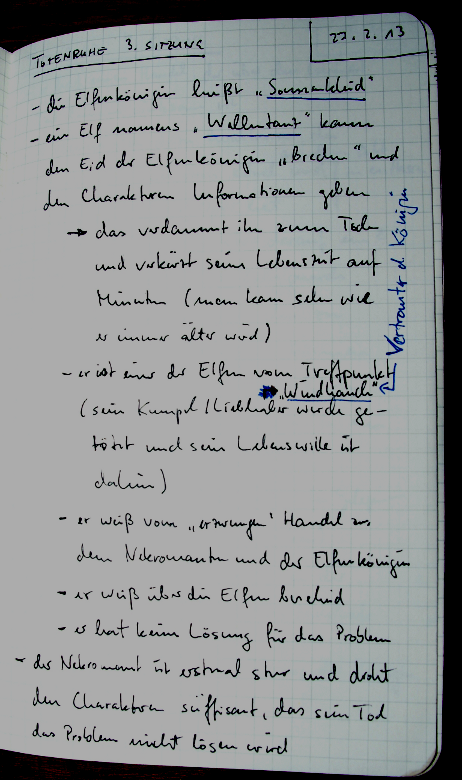 TOTENRUHE 3. SITZUNG
22.2.13
- die Elfenkönigin heißt „Sonnenkleid"
- ein Elf namens „Wellentanz" kann
den Eid der Elfenkönigin „brechen" und
den Charakteren Informationen geben
→ das verdammt ihn zum Tode
und verkürzt seine Lebenszeit auf
Minuten (man kann sehen wie
er immer älter wird)
- er ist einer der Elfen vom Treffpunkt
→ „Windhauch"
Vertrauter d. Königin
(sein Kumpel / Liebhaber wurde ge-
tötet und sein Lebenswille ist
dahin)
- er weiß vom „erzwungen" Handel zw.
dem Nekromanten und der Elfenkönigin
- er weiß über die Elfen bescheid
- er hat keine Lösung für das Problem
- der Nekromant ist erstmal stur und droht
den Charakteren süffisant, das sein Tod
das Problem nicht lösen wird